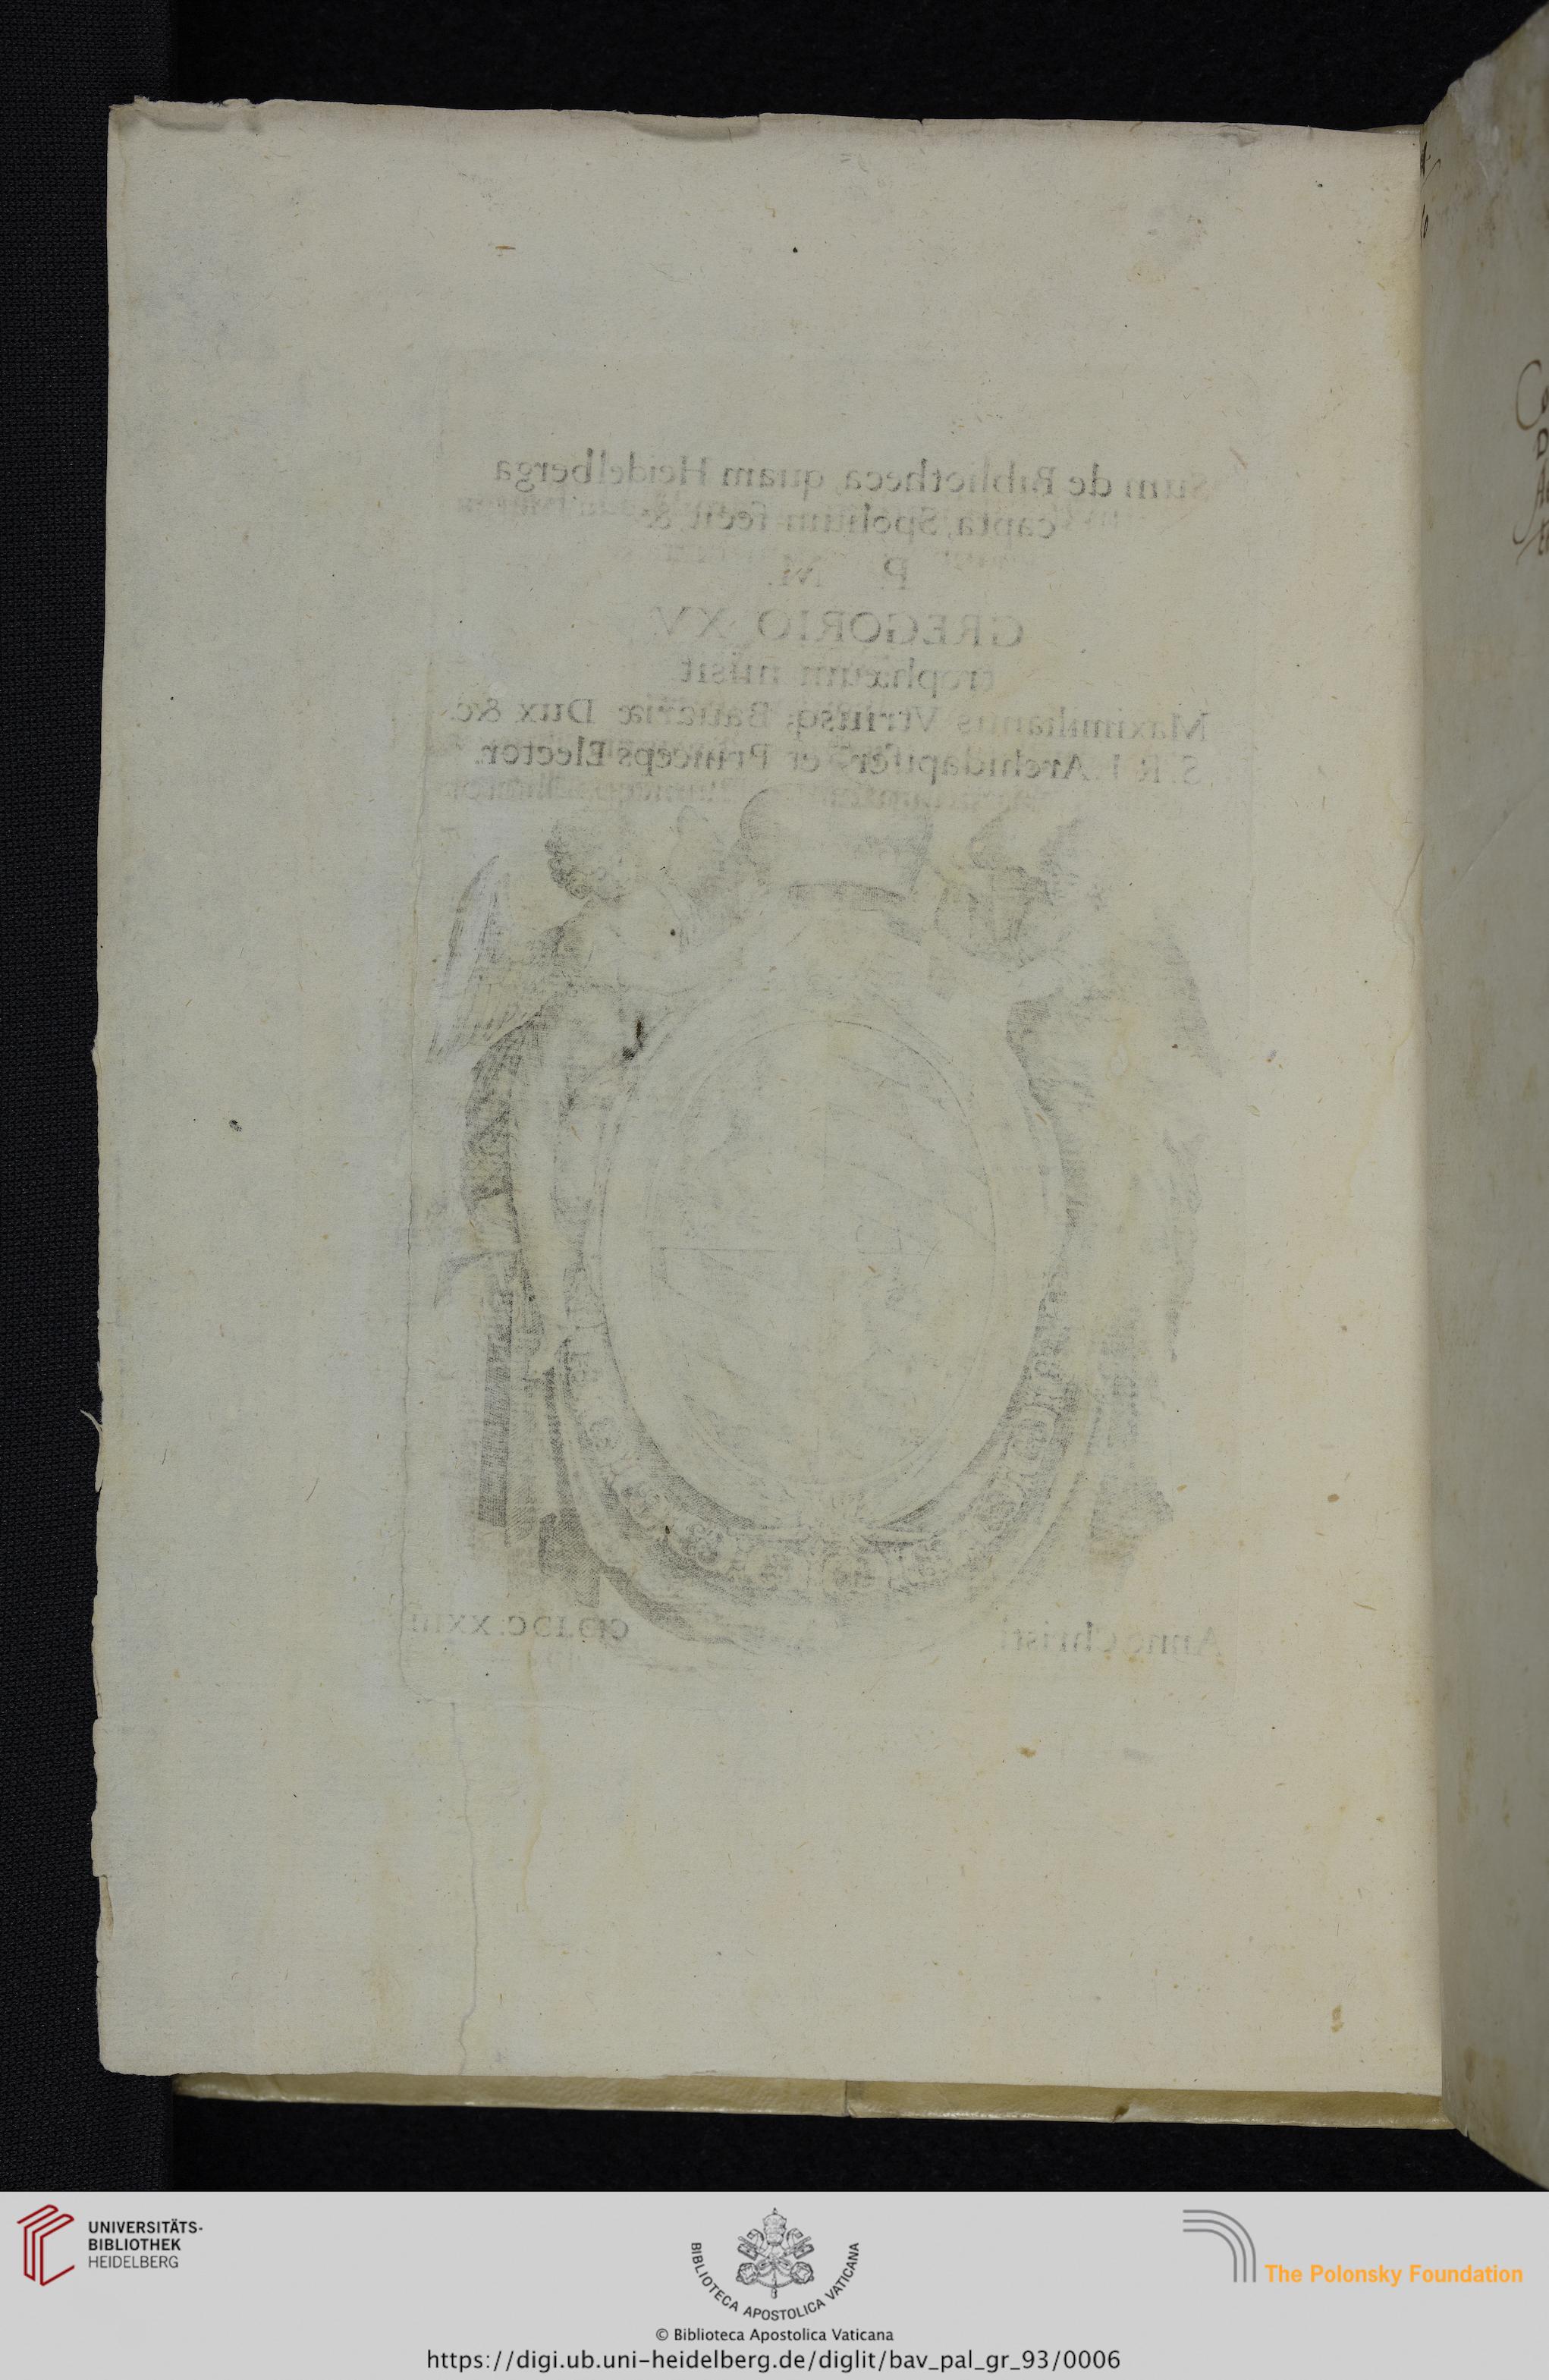 Sum de Bibliotheca, quam Heidelberga
capta, Spolium fecit, &
P. M.
GREGORIO XV.
trophæum misit
Maximilianus Vtriusq; Bauariæ Dux &c.
S. R. I. Archidapifer et Princeps Elector.
Anno Christi CIƆ.IƆC.XXIII
UNIVERSITÄTS-
BIBLIOTHEK
HEIDELBERG
BIBLIOTECA APOSTOLICA VATICANA
The Polonsky Foundation
© Biblioteca Apostolica Vaticana
https://digi.ub.uni-heidelberg.de/diglit/bav_pal_gr_93/0006